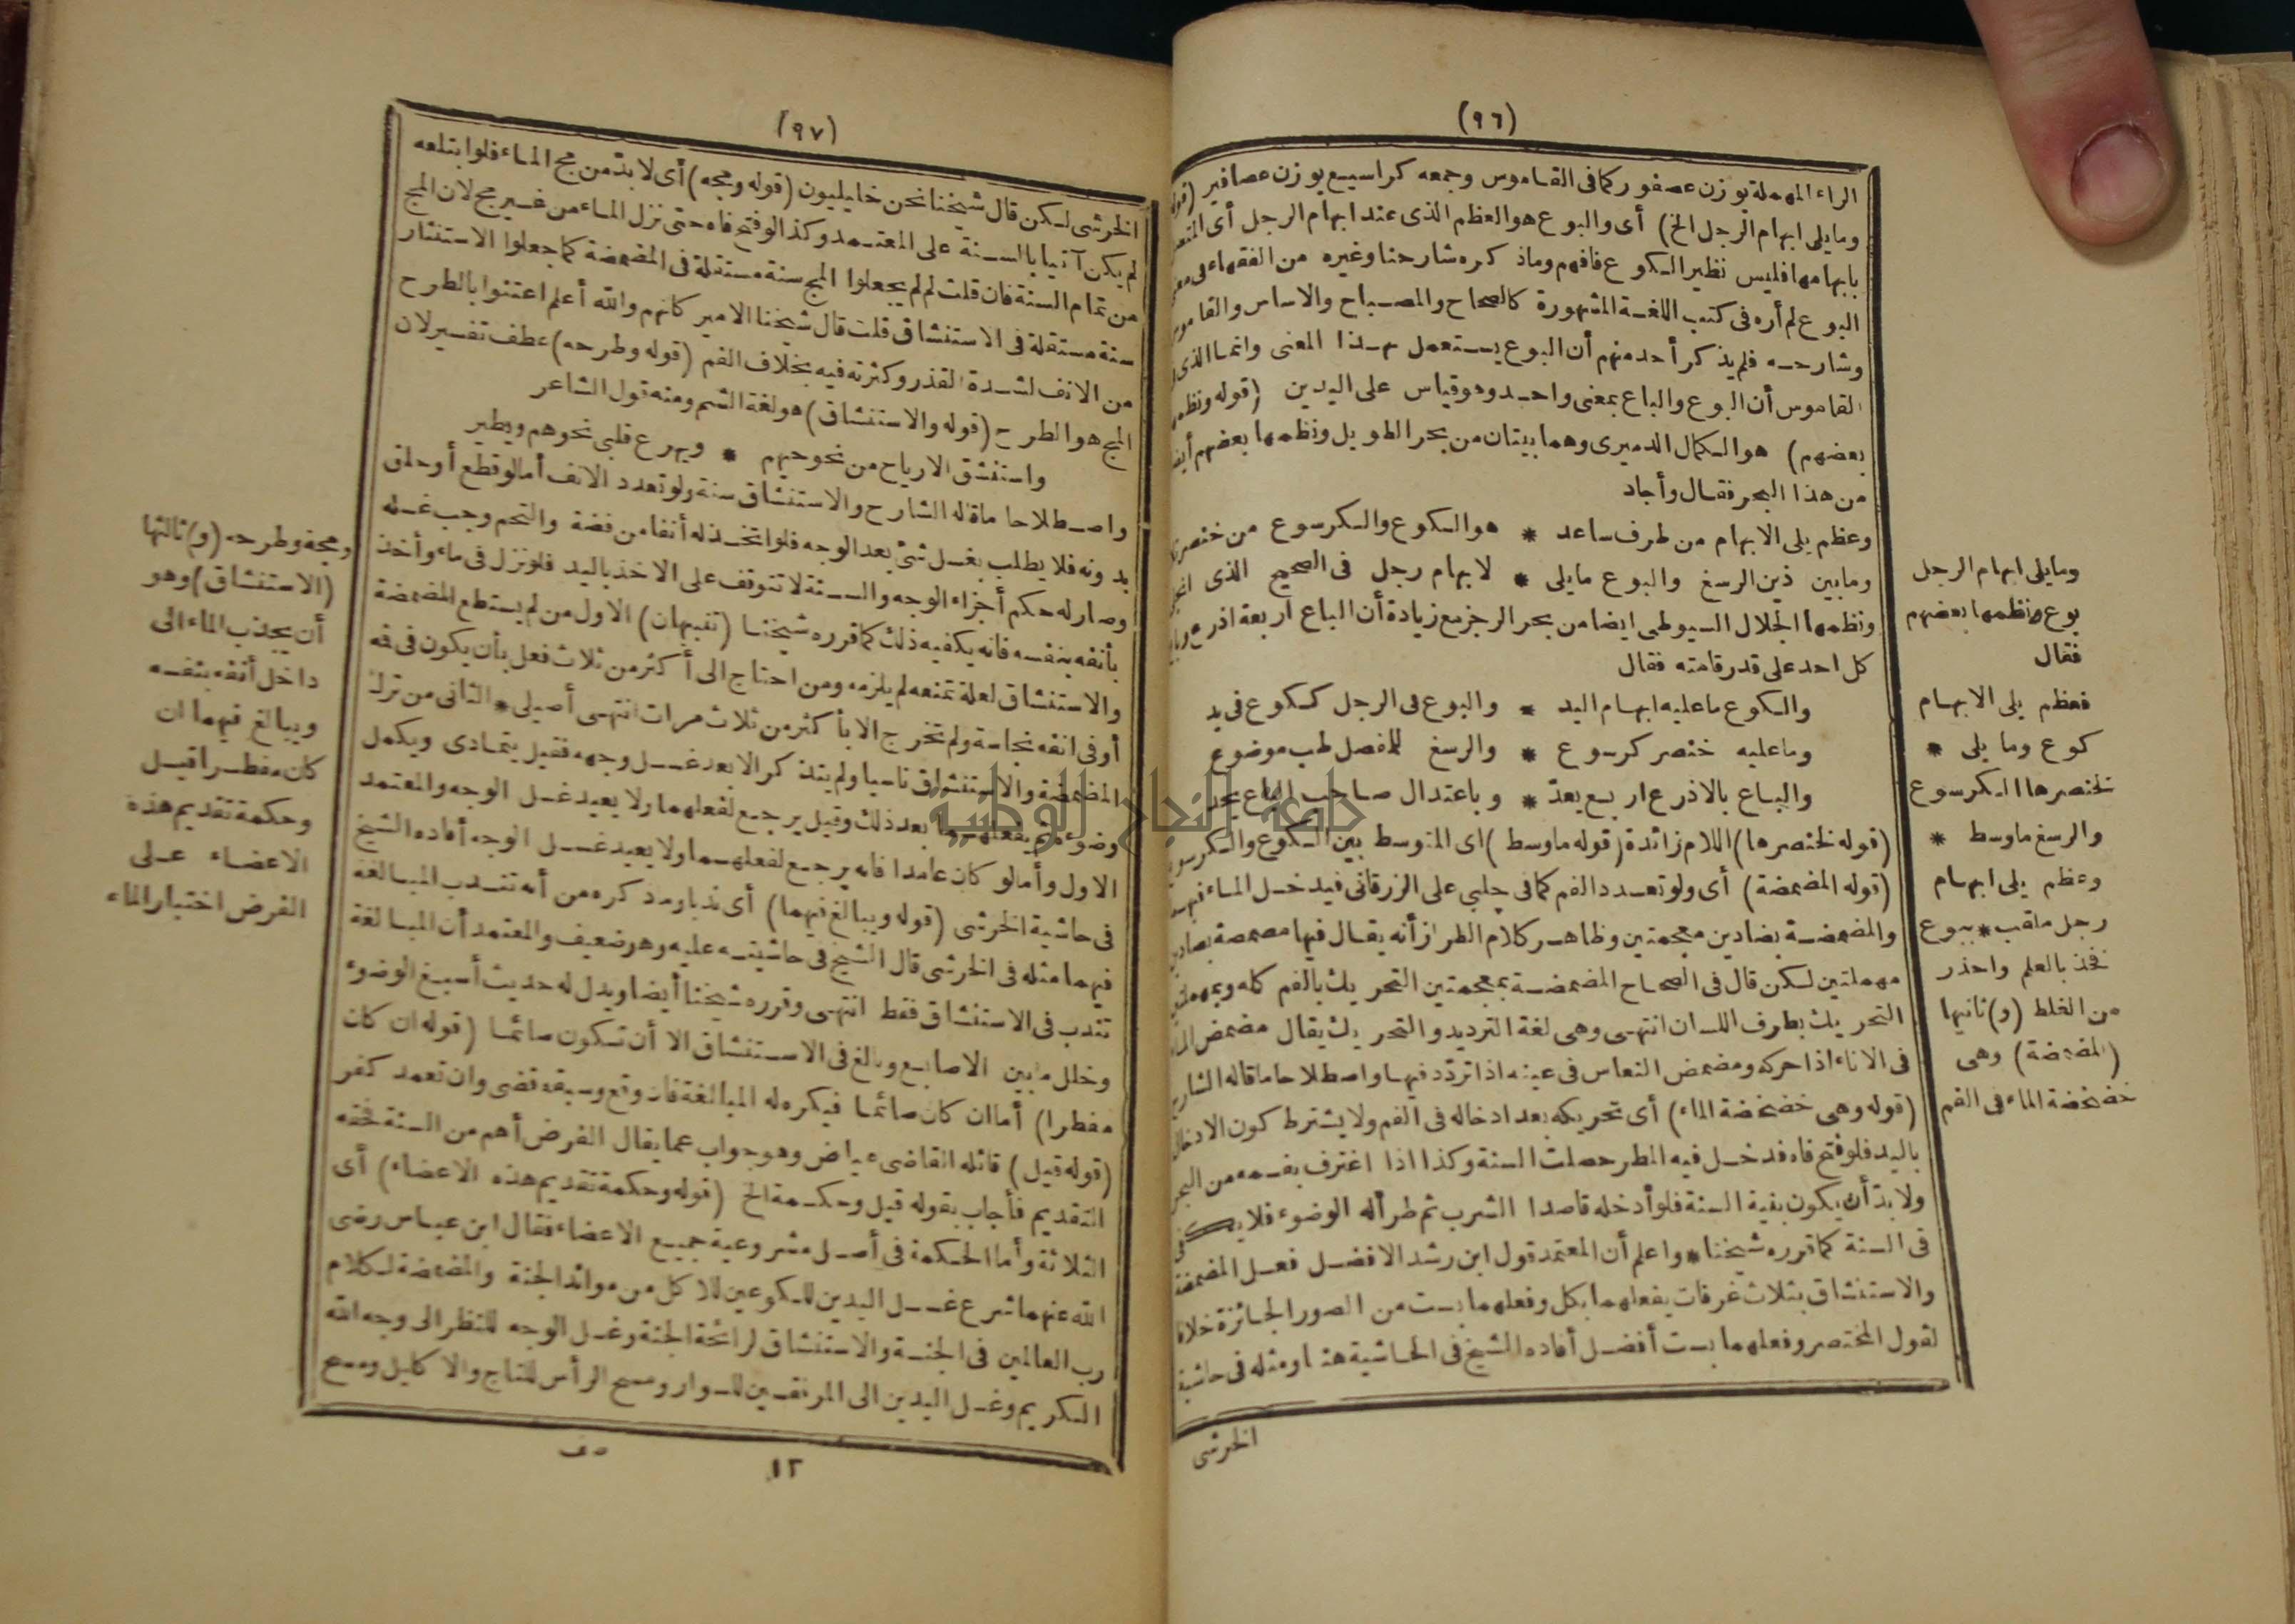 (٩٦)
الراء المهملة بوزن عصفور كما في القاموس وجمعه كراسيع بوزن عصافير (قوله
وما يلي ابهام الرجل الخ) أى والبوع هو العظم الذى عند ابهام الرجل أى
بابهامها فليس نظير الكوع فافهم وماذكره شارحنا وغيره من الفقهاء فى
البوع لم أره فى كتب اللغة المشهورة كالصحاح والمصباح والاساس والقاموس
وشارحه فلم يذكر أحد منهم أن البوع يستعمل بهذا المعنى وانما الذى
القاموس أن البوع والباع بمعنى واحد وهو قياس على اليدين (قوله ونظمها
بعضهم) هو الكمال الدميرى وهما بيتان من بحر الطويل ونظمها بعضهم أيضا
من هذا البحر فقال وأجاد
وعظم يلى الابهام من طرف ساعد * هو الكوع والكرسوع من خنصر
وما بين ذين الرسغ والبوع مايلى * لابهام رجل فى الصحيح الذى
ونظمها الجلال السيوطى ايضا من بحر الرجز مع زيادة أن الباع اربعة اذرع
كل احد على قدر قامته فقال
والكوع ما عليه ابهام اليد * والبوع فى الرجل ككوع فى يد
وما عليه خنصر كرسوع * والرسغ للمفصل طب موضوع
والباع بالاذرع اربع يعد * وباعتدال صاحب الباع يحد
(قوله لخنصرها) اللام زائدة (قوله ما وسط) اى المتوسط بين الكوع والكرسوع
(قوله المضمضة) أى ولو تعدد الفم كما فى جلبي على الزرقانى فيدخل الماء فيهما
والمضمضة بضادين معجمتين وظاهر كلام الطراز أنه يقال فيها مصمصة بصادين
مهملتين لكن قال فى الصحاح المضمضة بمعجمتين التحريك بالفم كله وبمهملتين
التحريك بطرف اللسان انتهى وهى لغة الترديد والتحريك يقال مضمض الماء
فى الاناء اذا حركه ومضمض النعاس فى عينه اذا تردد فيها واصطلاحا ما قاله الشارح
(قوله وهى خضخضة الماء) أى تحريكه بعد ادخاله فى الفم ولا يشترط كون الادخال
باليد فلو فتح فاه فدخل فيه المطر حصلت السنة وكذا اذا اغترف بفمه من البحر
ولا بد أن يكون بنية السنة فلو أدخله قاصدا الشرب ثم طرأ له الوضوء فلا يكفى
فى السنة كما قرره شيخنا * واعلم أن المعتمد قول ابن رشد الافضل فعل المضمضة
والاستنشاق بثلاث غرفات يفعلهما بكل وفعلهما بست من الصور الجائزة خلافا
لقول المختصر وفعلهما بست أفضل أفاده الشيخ فى الحاشية هنا ومثله فى حاشية
الخرشى
وما يلى ابهام الرجل
بوع ونظمها بعضهم
فقال
فعظم يلى الابهام
كوع وما يلى *
لخنصرها الكرسوع
والرسغ ما وسط *
وعظم يلى ابهام
رجل ملقب * ببوع
فخذ بالعلم واحذر
من الغلط (و) ثانيها
(المضمضة) وهى
خضخضة الماء فى الفم
(٩٧)
الخرشى لكن قال شيخنا نحن خليليون (قوله ومجه) أى لا بد من مج الماء فلو ابتلعه
لم يكن آتيا بالسنة على المعتمد وكذا لو فتح فاه حتى نزل الماء من غير مج لان المج
من تمام السنة فان قلت لم لم يجعلوا المج سنة مستقلة فى المضمضة كما جعلوا الاستنثار
سنة مستقلة فى الاستنشاق قلت قال شيخنا الامير كانهم والله أعلم اعتنوا بالطرح
من الانف لشدة القذر وكثرته فيه بخلاف الفم (قوله وطرحه) عطف تفسير لان
المج هو الطرح (قوله والاستنشاق) هو لغة الشم ومنه قول الشاعر
واستنشق الارياح من نحو حيهم * ويهرع قلبى نحوهم ويطير
واصطلاحا ما قاله الشارح والاستنشاق سنة ولو تعدد الانف أما لو قطع أو حلق
بدونه فلا يطلب بغسل شئ بعد الوجه فلو اتخذ له أنفا من فضة والتحم وجب غسله
وصار له حكم أجزاء الوجه والسنة لا تتوقف على الاخذ باليد فلو نزل فى ماء وأخذ
بأنفه بنفسه فانه يكفيه ذلك كما قرره شيخنا (تنبيهان) الاول من لم يستطع المضمضة
والاستنشاق لعلة تمنعه لم يلزمه ومن احتاج الى أكثر من ثلاث فعل بأن يكون فى فمه
أو فى انفه نجاسة ولم تخرج الا بأكثر من ثلاث مرات انتهى أصيلى * الثانى من ترك
المضمضة والاستنشاق ناسيا ولم يتذكر الا بعد غسل وجهه فقيل يتمادى ويكمل
وضوءه ثم يفعلهما بعد ذلك وقيل يرجع لفعلهما ولا يعيد غسل الوجه والمعتمد
الاول وأما لو كان عامدا فانه يرجع لفعلهما ولا يعيد غسل الوجه أفاده الشيخ
فى حاشية الخرشى (قوله ويبالغ فيهما) أى ندبا وما ذكره من أنه تندب المبالغة
فيهما مثله فى الخرشى قال الشيخ فى حاشيته عليه وهو ضعيف والمعتمد أن المبالغة
تندب فى الاستنشاق فقط انتهى وقرره شيخنا أيضا ويدل له حديث أسبغ الوضوء
وخلل ما بين الاصابع وبالغ فى الاستنشاق الا أن تكون صائما (قوله ان كان
مفطرا) أما ان كان صائما فيكره له المبالغة فان وقع وسبقه قضى وان تعمد كفر
(قوله قيل) قائله القاضى عياض وهو جواب عما يقال الفرض أهم من السنة فحقه
التقديم فأجاب بقوله قيل وحكمة الخ (قوله وحكمة تقديم هذه الاعضاء) أى
الثلاثة وأما الحكمة فى أصل مشروعية جميع الاعضاء فقال ابن عباس رضى
الله عنهما شرع غسل اليدين للكوعين للاكل من موائد الجنة والمضمضة لكلام
رب العالمين فى الجنة والاستنشاق لرائحة الجنة وغسل الوجه للنظر الى وجه الله
الكريم وغسل اليدين الى المرفقين للسوار ومسح الرأس للتاج والاكليل ومسح
١٢ صف
ومجه وطرحه (و) ثالثها
(الاستنشاق) وهو
أن يجذب الماء الى
داخل أنفه بنفسه
ويبالغ فيهما ان
كان مفطرا قيل
وحكمة تقديم هذه
الاعضاء على
الفرض اختبار الماء
جامعة النجاح الوطنية